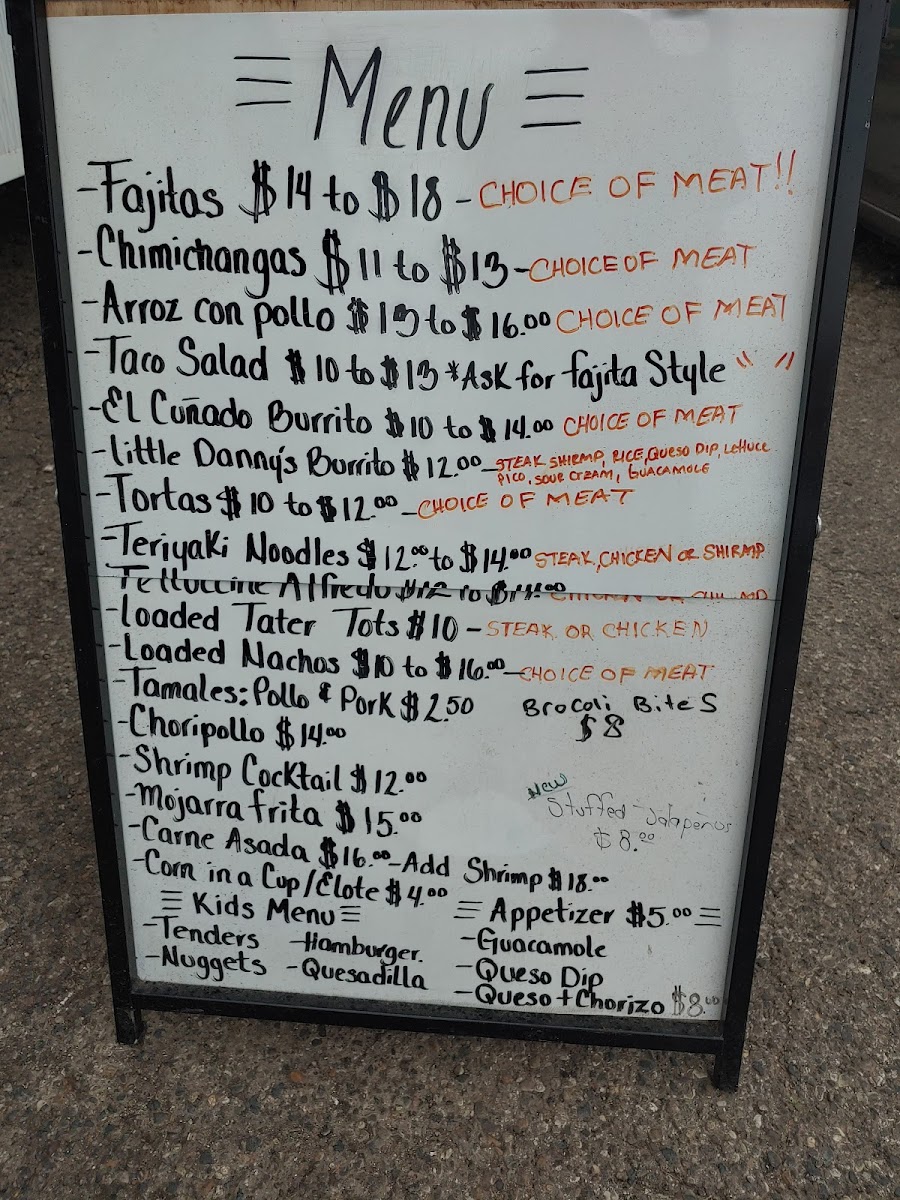 Menu
-Fajitas $14 to $18 - CHOICE OF MEAT!!
-Chimichangas $11 to $13-CHOICE OF MEAT
-Arroz con pollo $15 to $16.00 CHOICE OF MEAT
-Taco Salad $10 to $13 *Ask for fajita Style" "
-El Cuñado Burrito $10 to $14.00 CHOICE OF MEAT
-little Danny's Burrito $12.00-STEAK SHIRMP, RICE, QUESO DIP, LETTUCE
PICO, SOUR CREAM, GUACAMOLE
-Tortas $10 to $12.00-CHOICE OF MEAT
-Teriyaki Noodles $12.00 to $14.00 STEAK, CHICKEN OR SHIRMP
Fettuccine Alfredo
-Loaded Tater Tots $10 - STEAK OR CHICKEN
-Loaded Nachos $10 to $16.00-CHOICE OF MEAT
-Tamales: Pollo & Pork $2.50
Brocoli Bites
$8
-Choripollo $14.00
-Shrimp Cocktail $12.00
New
Stuffed Jalapenos
$8.00
-Mojarra frita $15.00
-Carne Asada $16.00-Add Shrimp $18.00
-Corn in a Cup/Elote $4.00
Kids Menu
-Tenders -Hamburger.
-Nuggets -Quesadilla
Appetizer $5.00
-Guacamole
-Queso Dip
-Queso + Chorizo $8.00